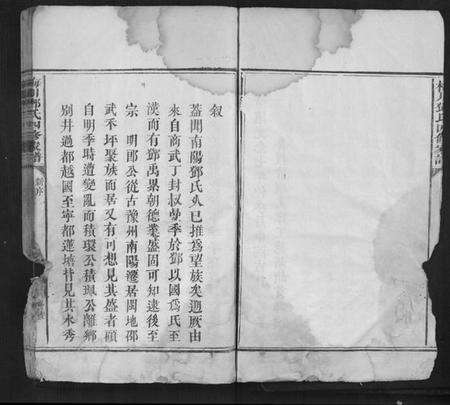 叙
蓋聞南陽鄧氏久已推為望族矣遡厥由
來自商武丁封叔曼季於鄧以國為氏至
漢而有鄧禹累朝德業盛固可知逮後至
宗明郎公從古豫州南陽遷居閩地邵
武禾坪聚族而居又有可想見其盛者頋
自明季時遭變亂而積瓊公積珮公離鄉
別井過都越國至寧都蓮塘背見其水秀